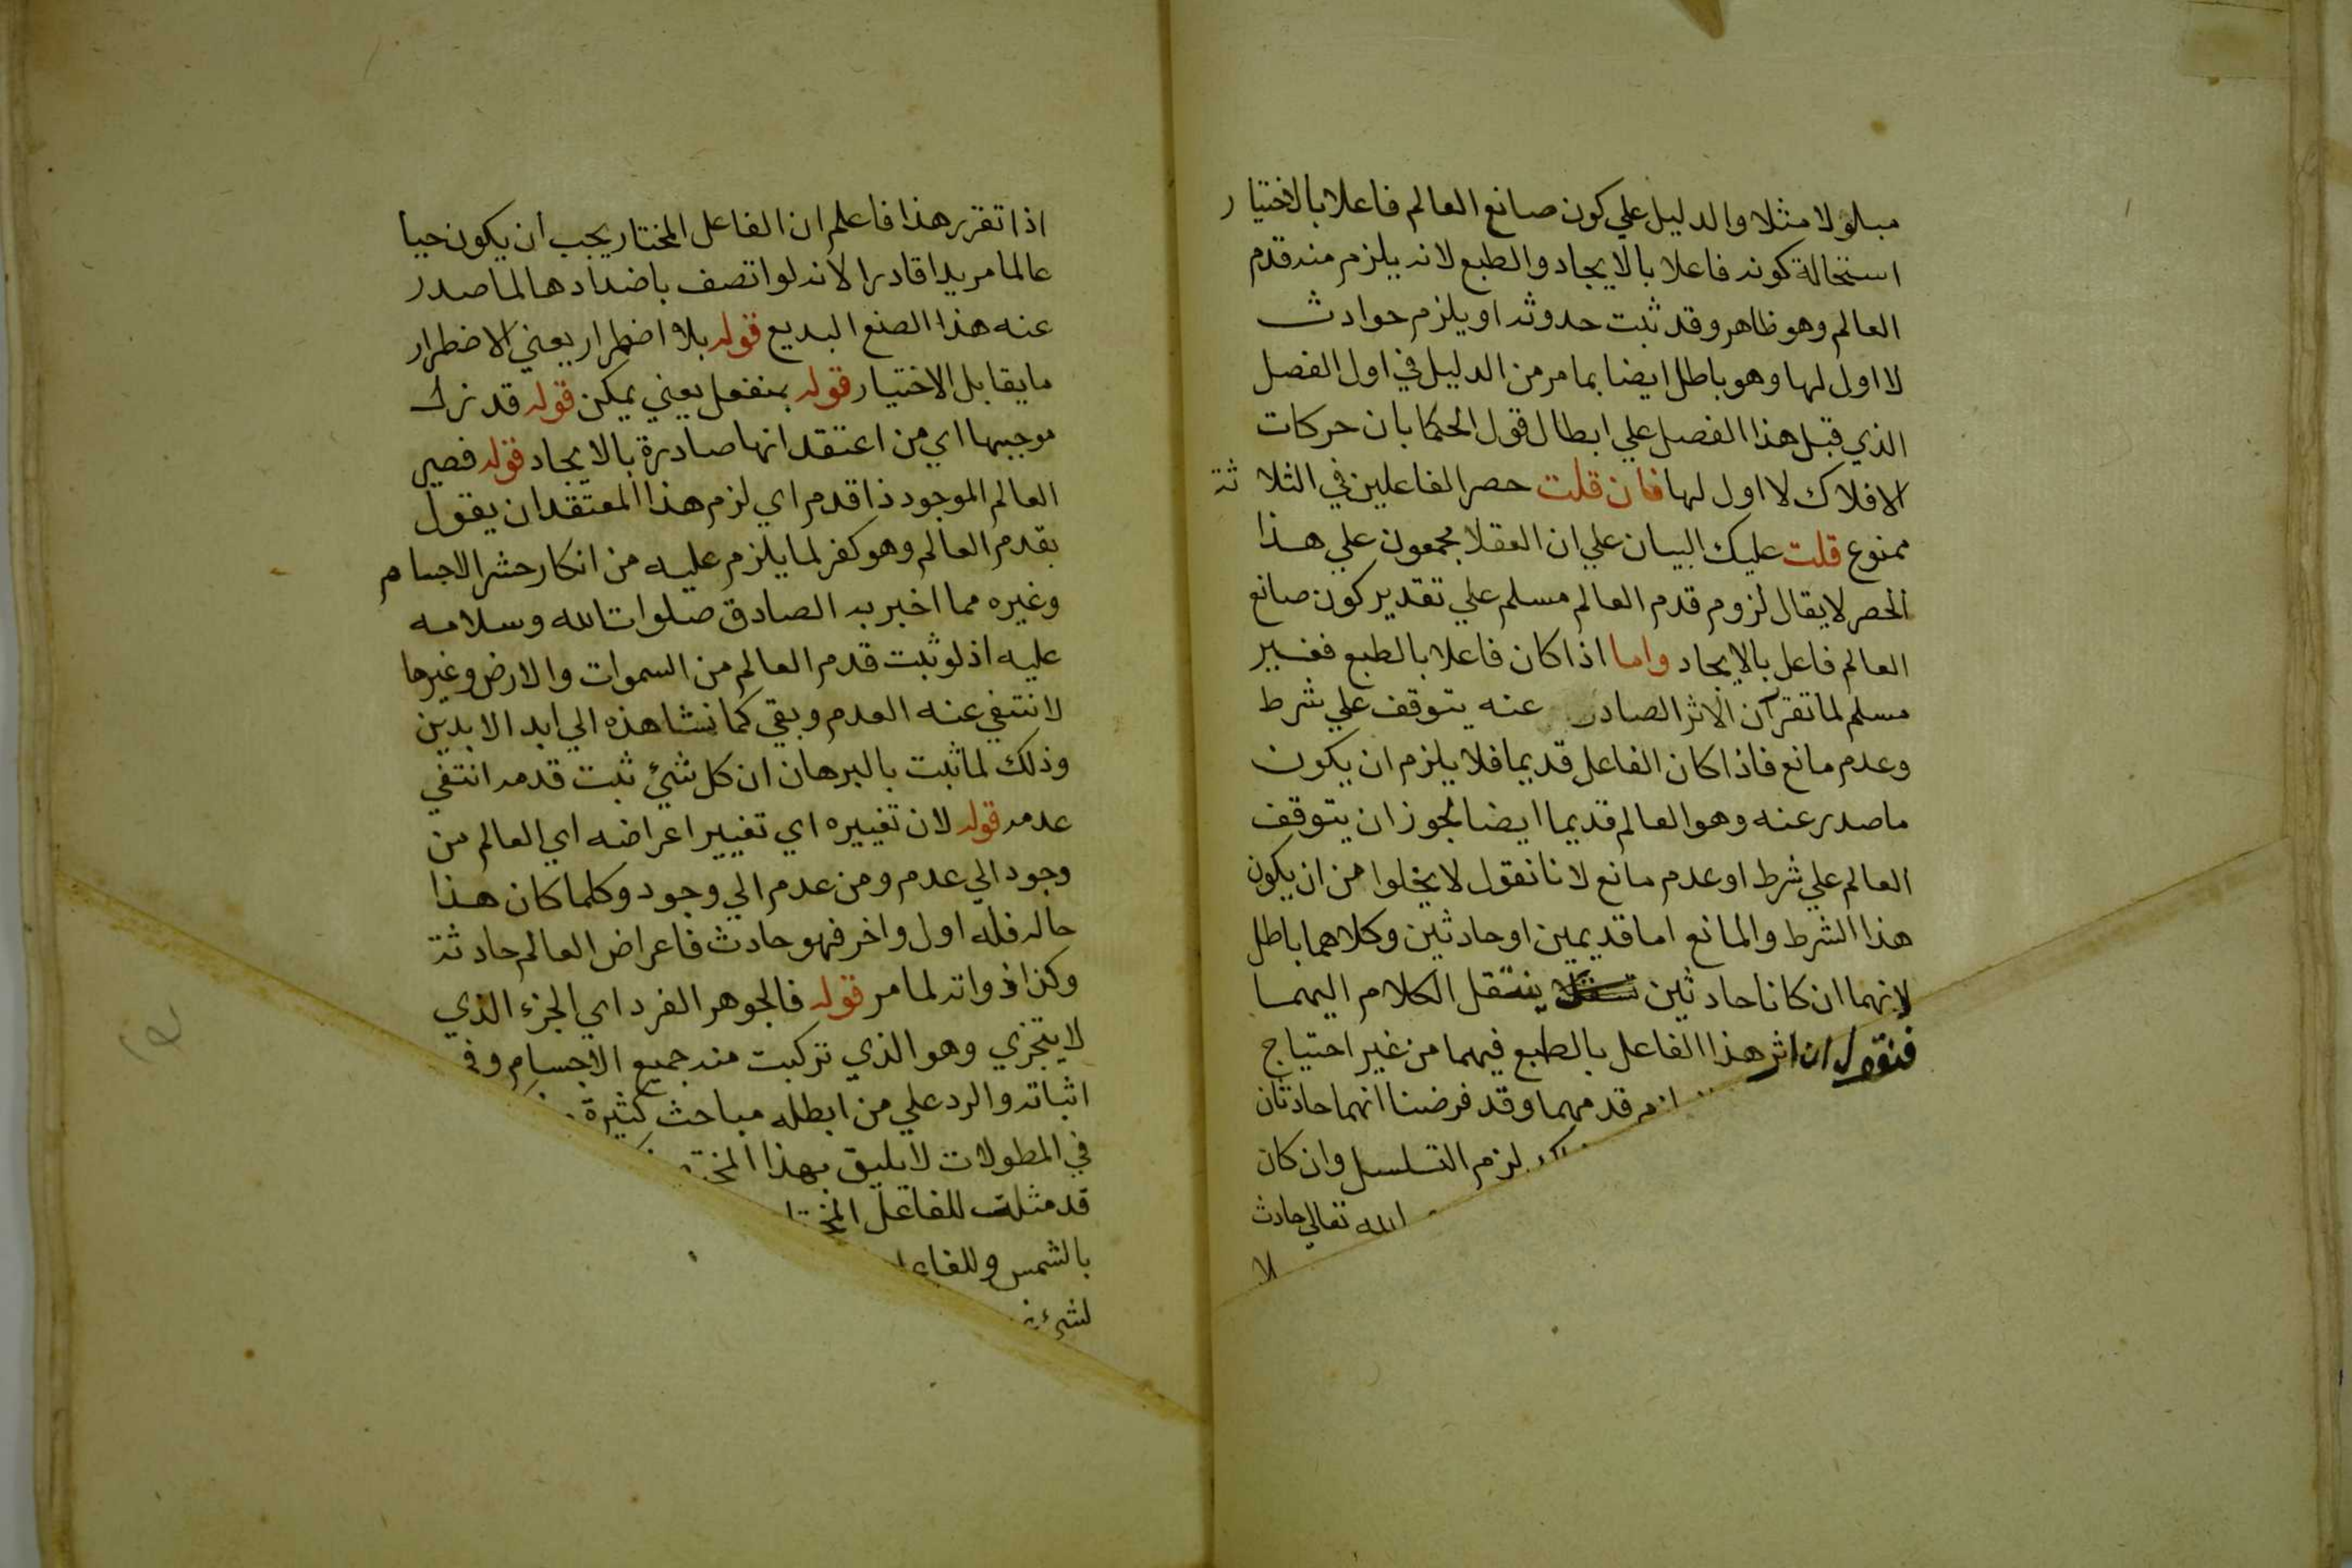 مبلولا مثلا والدليل علي كون صانع العالم فاعلا بالاختيار
استحالة كونه فاعلا بالايجاد والطبع لانه يلزم منه قدم
العالم وهو ظاهر وقد ثبت حدوثه او يلزم حوادث
لا اول لها وهو باطل ايضا بما مر من الدليل في اول الفصل
الذي قبل هذا الفصل علي ابطال قول الحكما بان حركات
الافلاك لا اول لها فان قلت حصر الفاعلين في الثلاثة
ممنوع قلت عليك البيان علي ان العقلا مجمعون علي هذا
الحصر لا يقال لزوم قدم العالم مسلم علي تقدير كون صانع
العالم فاعل بالايجاد واما اذا كان فاعلا بالطبع فغير
مسلم لما تقرر ان الاثر الصادر عنه يتوقف علي شرط
وعدم مانع فاذا كان الفاعل قديما فلا يلزم ان يكون
ما صدر عنه وهو العالم قديما ايضا لجواز ان يتوقف
العالم علي شرط او عدم مانع لانا نقول لا يخلوا من ان يكون
هذا الشرط والمانع اما قديمين او حادثين وكلاهما باطل
لانهما ان كانا حادثين ينتقل الكلام اليهما
فنقول ان اثر هذا الفاعل بالطبع فيهما من غير احتياج
لزم قدمهما وقد فرضنا انهما حادثان
لزم التسلسل وان كان
الله تعالي حادث
لا
اذا تقرر هذا فاعلم ان الفاعل المختار يجب ان يكون حيا
عالما مريدا قادرا لانه لو اتصف باضدادها لما صدر
عنه هذا الصنع البديع قوله بلا اضطرار يعني الاضطرار
ما يقابل الاختيار قوله بمنفعل يعني يمكن قوله قد ترك
موجبها اي من اعتقد انها صادرة بالايجاد قوله فصير
العالم الموجود ذا قدم اي لزم هذا المعتقد ان يقول
بقدم العالم وهو كفر لما يلزم عليه من انكار حشر الاجسام
وغيره مما اخبر به الصادق صلوات الله وسلامه
عليه اذ لو ثبت قدم العالم من السموات والارض وغيرها
لانتفي عنه العدم وبقي كما نشاهذه الي ابد الابدين
وذلك لما ثبت بالبرهان ان كل شيئ ثبت قدمه انتفي
عدمه قوله لان تغييره اي تغيير اعراضه اي العالم من
وجود الي عدم ومن عدم الي وجود وكلما كان هذا
حاله فله اول واخر فهو حادث فاعراض العالم حادثة
وكذا ذواته لما مر قوله فالجوهر الفرد اي الجزء الذي
لا يتجزي وهو الذي تركبت منه جميع الاجسام وفي
اثباته والرد علي من ابطله مباحث كثيرة
في المطولات لا يليق بهذا
قد مثلت للفاعل
بالشمس